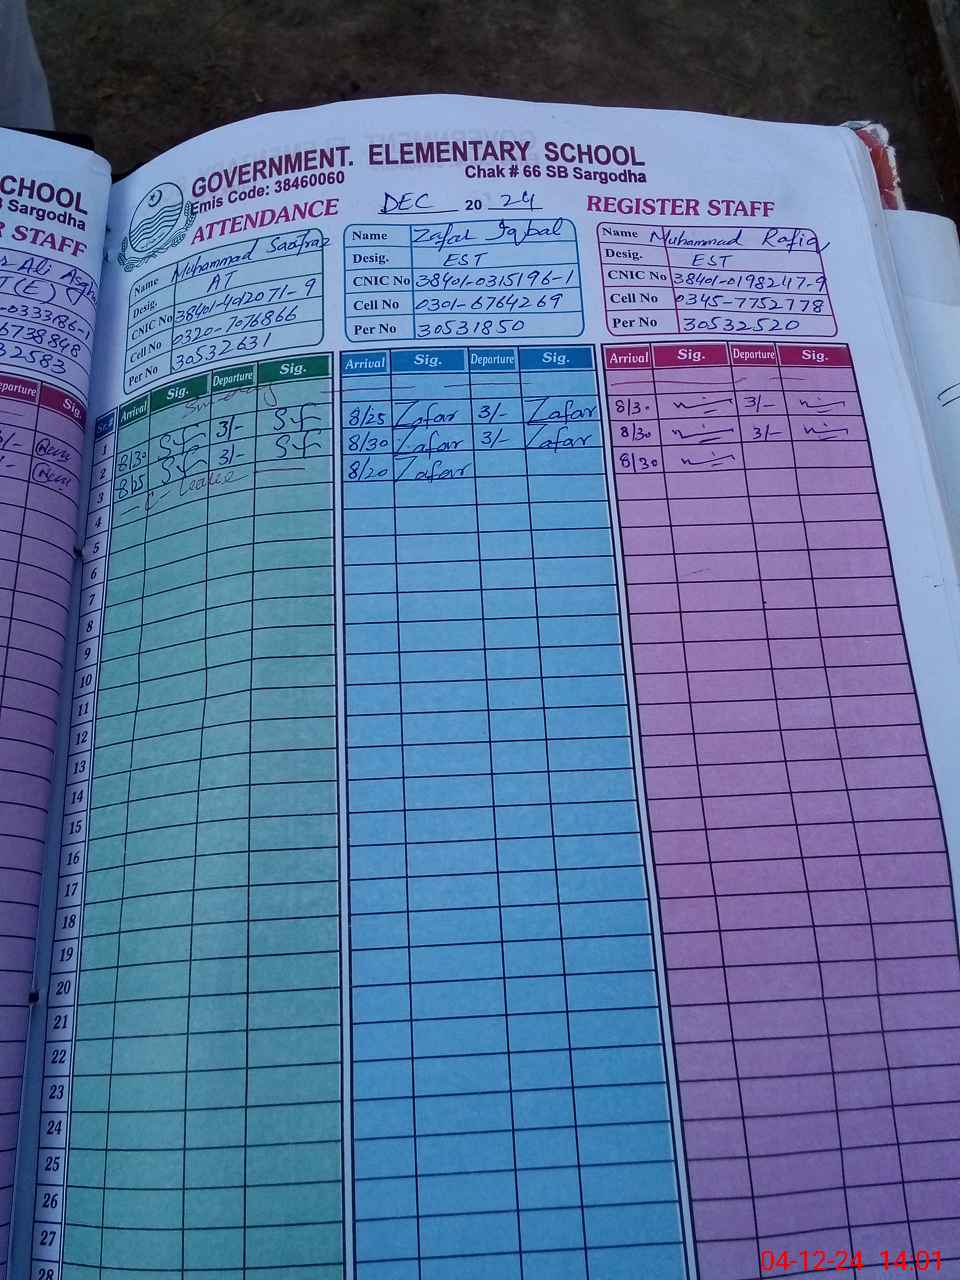 CHOOL
Sargodha
R STAFF
GOVERNMENT. ELEMENTARY SCHOOL
Emis Code: 38460060
Chak # 66 SB Sargodha
ATTENDANCE
DEC 2024
REGISTER STAFF
Name Muhammad Saafraz
Desig. AT
CNIC No 38401-4d2071-9
Cell No 0320-7076866
Per No 30532631
Name Zafar Iqbal
Desig. EST
CNIC No 38401-0315196-1
Cell No 0301-6764269
Per No 30531850
Name Muhammad Rafiq
Desig. EST
CNIC No 38401-0198247-9
Cell No 0345-7752778
Per No 30532520
Ali Asghar
(E)
0333186-1
6738848
32583
eparture Sig.
Sr.# Arrival Sig. Departure Sig.
Arrival Sig. Departure Sig.
Arrival Sig. Departure Sig.
Sunday
1 8/30 SF 3/- SF
8/25 Zafar 3/- Zafar
8/30 3/-
2 8/25 SF 3/- SF
8/30 Zafar 3/- Zafar
8/30 3/-
3 C-leave
8/20 Zafar
8/30
4
5
6
7
8
9
10
11
12
13
14
15
16
17
18
19
20
21
22
23
24
25
26
27
28
04-12-24 14:01